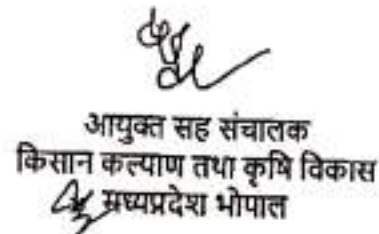 आयुक्त सह संचालक
किसान कल्याण तथा कृषि विकास
मध्यप्रदेश भोपाल